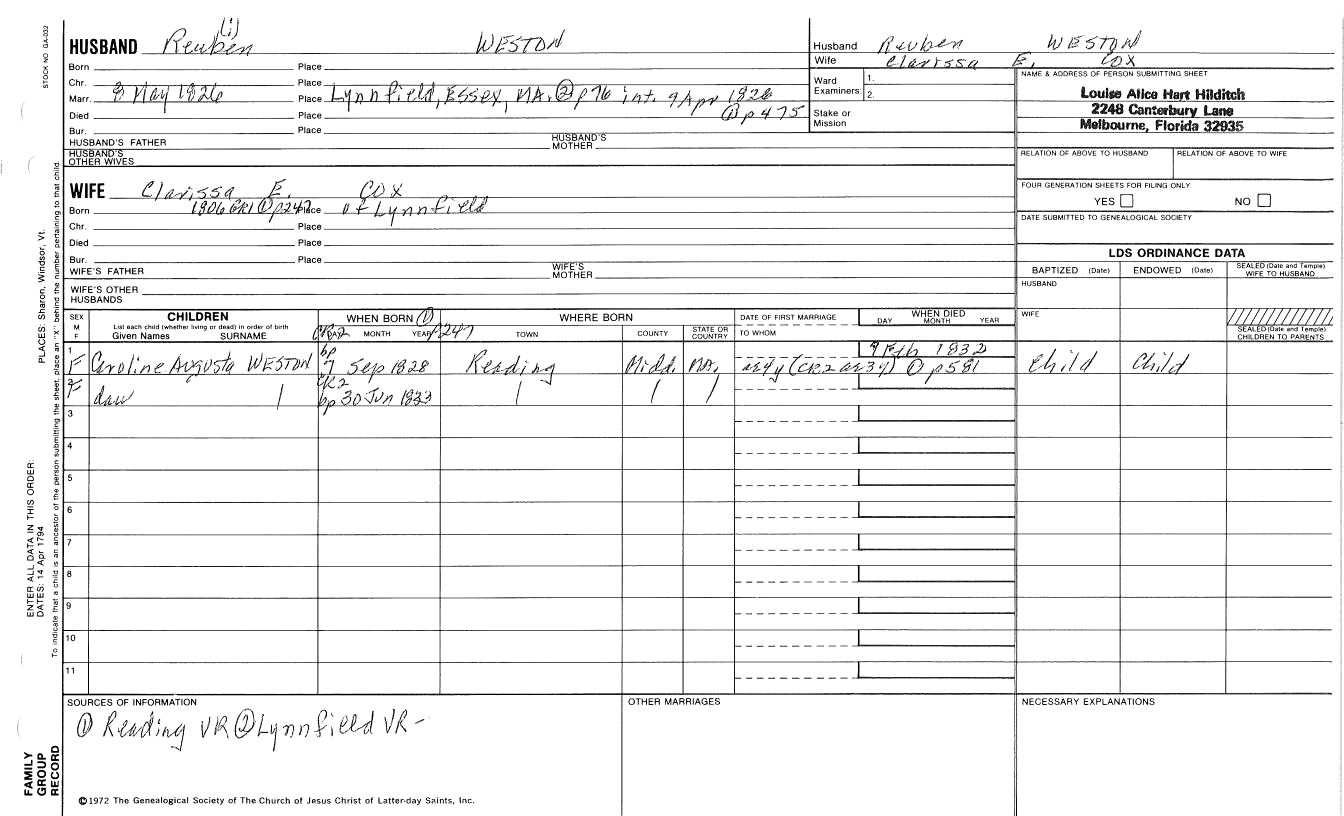 STOCK NO. GA-032
HUSBAND Reuben (1) WESTON
Born Place
Chr. Place
Marr. 8 May 1826 Place Lynnfield, Essex, MA. ② p 76 int. 9 Apr 1826
① p 475
Died Place
Bur. Place
HUSBAND'S FATHER HUSBAND'S MOTHER
HUSBAND'S OTHER WIVES
Husband Reuben WESTON
Wife Clarissa E. COX
Ward Examiners: 1.
2.
Stake or Mission
NAME & ADDRESS OF PERSON SUBMITTING SHEET
Louise Alice Hart Hilditch
2248 Canterbury Lane
Melbourne, Florida 32935
RELATION OF ABOVE TO HUSBAND RELATION OF ABOVE TO WIFE
FOUR GENERATION SHEETS FOR FILING ONLY
YES NO
DATE SUBMITTED TO GENEALOGICAL SOCIETY
WIFE Clarissa E. COX
Born 1806 GR1 ① p247 Place of Lynnfield
Chr. Place
Died Place
Bur. Place
WIFE'S FATHER WIFE'S MOTHER
WIFE'S OTHER HUSBANDS
LDS ORDINANCE DATA
BAPTIZED (Date) ENDOWED (Date) SEALED (Date and Temple) WIFE TO HUSBAND
HUSBAND
WIFE
SEALED (Date and Temple) CHILDREN TO PARENTS
SEX M F CHILDREN WHEN BORN ① WHERE BORN DATE OF FIRST MARRIAGE WHEN DIED
List each child (whether living or dead) in order of birth
Given Names SURNAME CR2 DAY MONTH YEAR p247 TOWN COUNTY STATE OR COUNTRY TO WHOM DAY MONTH YEAR
1 bp 9 Feb 1832
F Caroline Augusta WESTON 7 Sep 1828 Reading Midd. MA. ar4y (CR.2 ar3y) ① p581 Child Child
2 CR2
F dau bp 30 Jun 1833
3
4
5
6
7
8
9
10
11
SOURCES OF INFORMATION OTHER MARRIAGES NECESSARY EXPLANATIONS
① Reading VR ② Lynnfield VR -
©1972 The Genealogical Society of The Church of Jesus Christ of Latter-day Saints, Inc.
FAMILY GROUP RECORD
ENTER ALL DATA IN THIS ORDER:
DATES: 14 Apr 1794 PLACES: Sharon, Windsor, Vt.
To indicate that a child is an ancestor of the person submitting the sheet, place an "X" behind the number pertaining to that child.